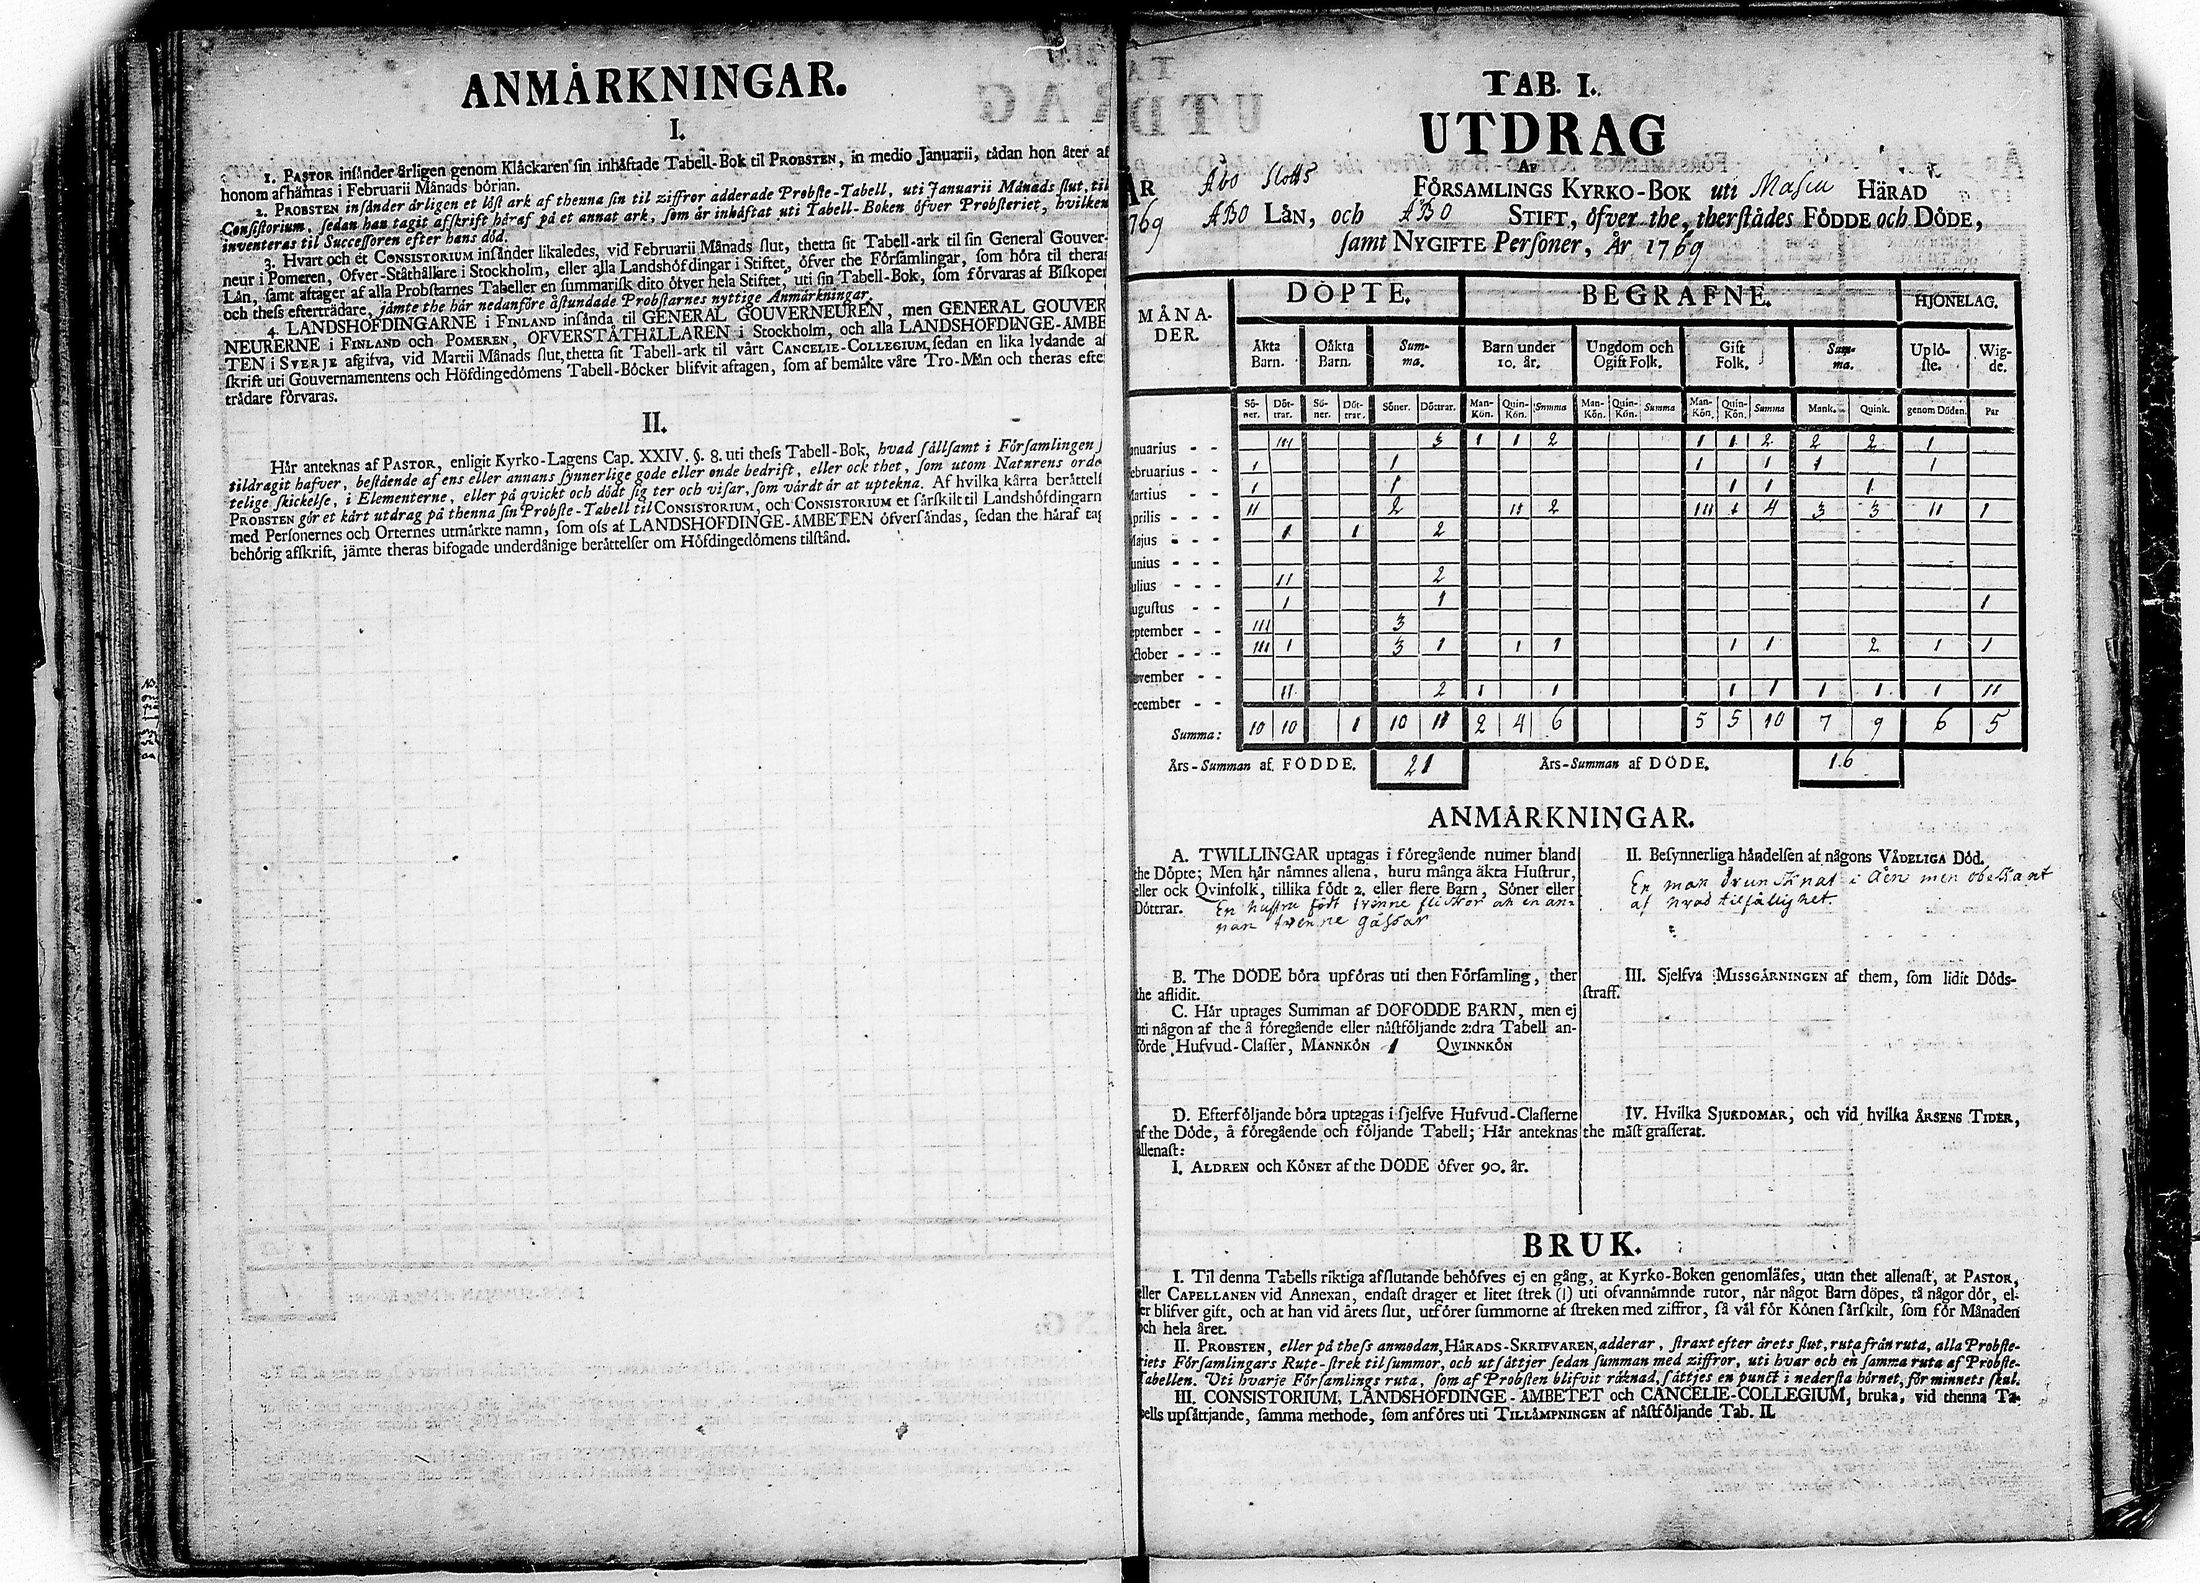 ANMÅRKNINGAR.
I.
1. PASTOR insånder årligen genom Klåckaren sin inhåftade Tabell-Bok til PROBSTEN, in medio Januarii, tådan hon åter af
honom afhåmtas i Februarii Månads början.
2. PROBSTEN insånder årligen et löst ark af thenna sin til ziffror adderade Probste-Tabell, uti Januarii Månads slut, til
Consistorium, sedan han tagit afskrift håraf på et annat ark, som år inhåftat uti Tabell-Boken öfver Probsteriet, hvilken
inventeras til Successoren efter hans död.
3. Hvart och et CONSISTORIUM insånder likaledes, vid Februarii Månads slut, thetta sit Tabell-ark til sin General Gouver-
neur i Pomeren, Öfver-Ståthållare i Stockholm, eller alla Landshöfdingar i Stiftet, öfver the Församlingar, som höra til theras
Lån, samt aftager af alla Probstarnes Tabeller en summarisk dito öfver hela Stiftet, uti sin Tabell-Bok, som förvaras af Biskopen
och thess eftertrådare, jåmte the hår nedanföre åstundade Probstarnes nyttige Anmårkningar.
4. LANDSHÖFDINGARNE i FINLAND insånda til GENERAL GOUVERNEUREN, men GENERAL GOUVER
NEURERNE i FINLAND och POMEREN, ÖFVERSTÅTHÅLLAREN i Stockholm, och alla LANDSHÖFDINGE-ÅMBE
TEN i SVERJE afgifva, vid Martii Månads slut, thetta sit Tabell-ark til vårt CANCELIE-COLLEGIUM, sedan en lika lydande af
skrift uti Gouvernamentens och Höfdingedömens Tabell-Böcker blifvit aftagen, som af bemålte våre Tro-Mån och theras efter
trådare förvaras.
II.
Hår anteknas af PASTOR, enligit Kyrko-Lagens Cap. XXIV. §. 8. uti thess Tabell-Bok, hvad sållsamt i Församlingen
tildragit hafver, bestående af ens eller annans synnerlige gode eller onde bedrift, eller ock thet, som utom Naturens orde
telige skickelse, i Elementerne, eller på qvickt och dödt sig ter och visar, som vårdt år at uptekna. Af hvilka kårta beråttels
PROBSTEN gör et kårt utdrag på thenna sin Probste-Tabell til CONSISTORIUM, och CONSISTORIUM et sårskilt til Landshöfdingarn
med Personernes och Orternes utmårkte namn, som oss af LANDSHÖFDINGE-ÅMBETEN öfversåndas, sedan the håraf tag
behörig afskrift, jåmte theras bifogade underdånige beråttelser om Höfdingedömens tilstånd.
TAB. I.
UTDRAG
AF
ÅR Åbo Slotts FÖRSAMLINGS KYRKO-BOK uti Masku HÅRAD
1769 ÅBO LÅN, och ÅBO STIFT, öfver the, therstådes FÖDDE och DÖDE,
samt NYGIFTE Personer, År 1769
MÅNA-DER. DÖPTE. BEGRAFNE. HJONELAG.
Åkta Barn. Oåkta Barn. Sum-ma. Barn under 10. år. Ungdom och Ogift Folk. Gift Folk. Sum-ma. Uplö-ste. Wig-de.
Sö-ner. Döt-trar. Sö-ner. Döt-trar. Söner. Döttrar. Man-Kön. Quin-Kön. Summa Man-Kön. Quin-Kön. Summa Man-Kön. Quin-Kön. Summa Mank. Quink. genom Döden. Par
nuarius - - III 3 1 1 2 1 1 2 2 2 1
ebruarius - - 1 1 1 1 1 1
Martius - - 1 1 1 1 1
prilis - - II 2 II 2 III 1 4 3 3 II 1
Majus - - 1 1 2
unius - - -
ulius - - - II 2
ugustus - - 1 1 1
eptember - - III 3
ctober - - - III 1 3 1 1 1 1 1 2 1 1
ovember - -
ecember - - II 2 1 1 1 1 1 1 1 II
Summa: 10 10 1 10 11 2 4 6 5 5 10 7 9 6 5
Års-Summan af FÖDDE. 21 Års-Summan af DÖDE. 16
ANMÅRKNINGAR.
A. TWILLINGAR uptagas i föregående numer bland
the Döpte; Men hår nåmnes allena, huru många åkta Hustrur,
eller ock Qvinfolk, tillika födt 2. eller flere Barn, Söner eller
Döttrar. En hustru födt tvenne flickor och en an=
nan tvenne gåssar
B. The DÖDE böra upföras uti then Församling, ther
the aflidit.
C. Hår uptages Summan af DÖFÖDDE BARN, men ej
uti någon af the å föregående eller nåstföljande 2:dra Tabell an-
förde Hufvud-Classer, MANNKÖN 1 QWINNKÖN
D. Efterföljande böra uptagas i sjelfve Hufvud-Classerne
af the Döde, å föregående och följande Tabell; Hår anteknas
allenast:
I. ÅLDREN och KÖNET af the DÖDE öfver 90. år.
II. Besynnerliga håndelsen af någons VÅDELIGA Död.
En man drunknat i åen men obekant
af hvad tilfållighet.
III. Sjelfva MISSGÅRNINGEN af them, som lidit Döds-
straff.
IV. Hvilka SJUKDOMAR, och vid hvilka ÅRSENS TIDER,
the måst grasserat.
BRUK.
I. Til denna Tabells riktiga afslutande behöfves ej en gång, at Kyrko-Boken genomlåses, utan thet allenast, at PASTOR,
eller CAPELLANEN vid Annexan, endast drager et litet strek (|) uti ofvannåmnde rutor, når något Barn döpes, tå någor dör, el-
er blifver gift, och at han vid årets slut, utförer summorne af streken med ziffror, så vål för Könen sårskilt, som för Månaden
och hela året.
II. PROBSTEN, eller på thess anmodan, HÅRADS-SKRIFVAREN, adderar, straxt efter årets slut, ruta från ruta, alla Probste-
riets Församlingars Rute-strek til summor, och utsåttjer sedan summan med ziffror, uti hvar och en samma ruta af Probste-
Tabellen. Uti hvarje Församlings ruta, som af Probsten blifvit råknad, såttjes en punct i nedersta hörnet, för minnets skul.
III. CONSISTORIUM, LANDSHÖFDINGE-ÅMBETET och CANCELIE-COLLEGIUM, bruka, vid thenna Ta-
bells upsåttjande, samma methode, som anföres uti TILLÅMPNINGEN af nåstföljande Tab. II.